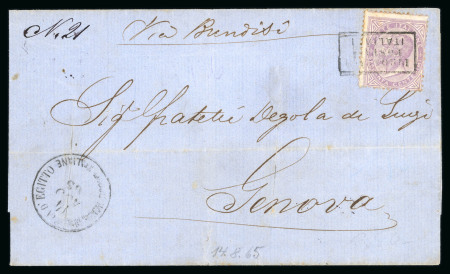 N. 21
Via Brindisi
ITALI
Sigri fratelli Degola di Luigi
Genova
D'EGITTO
ITALIANE
14.8.65